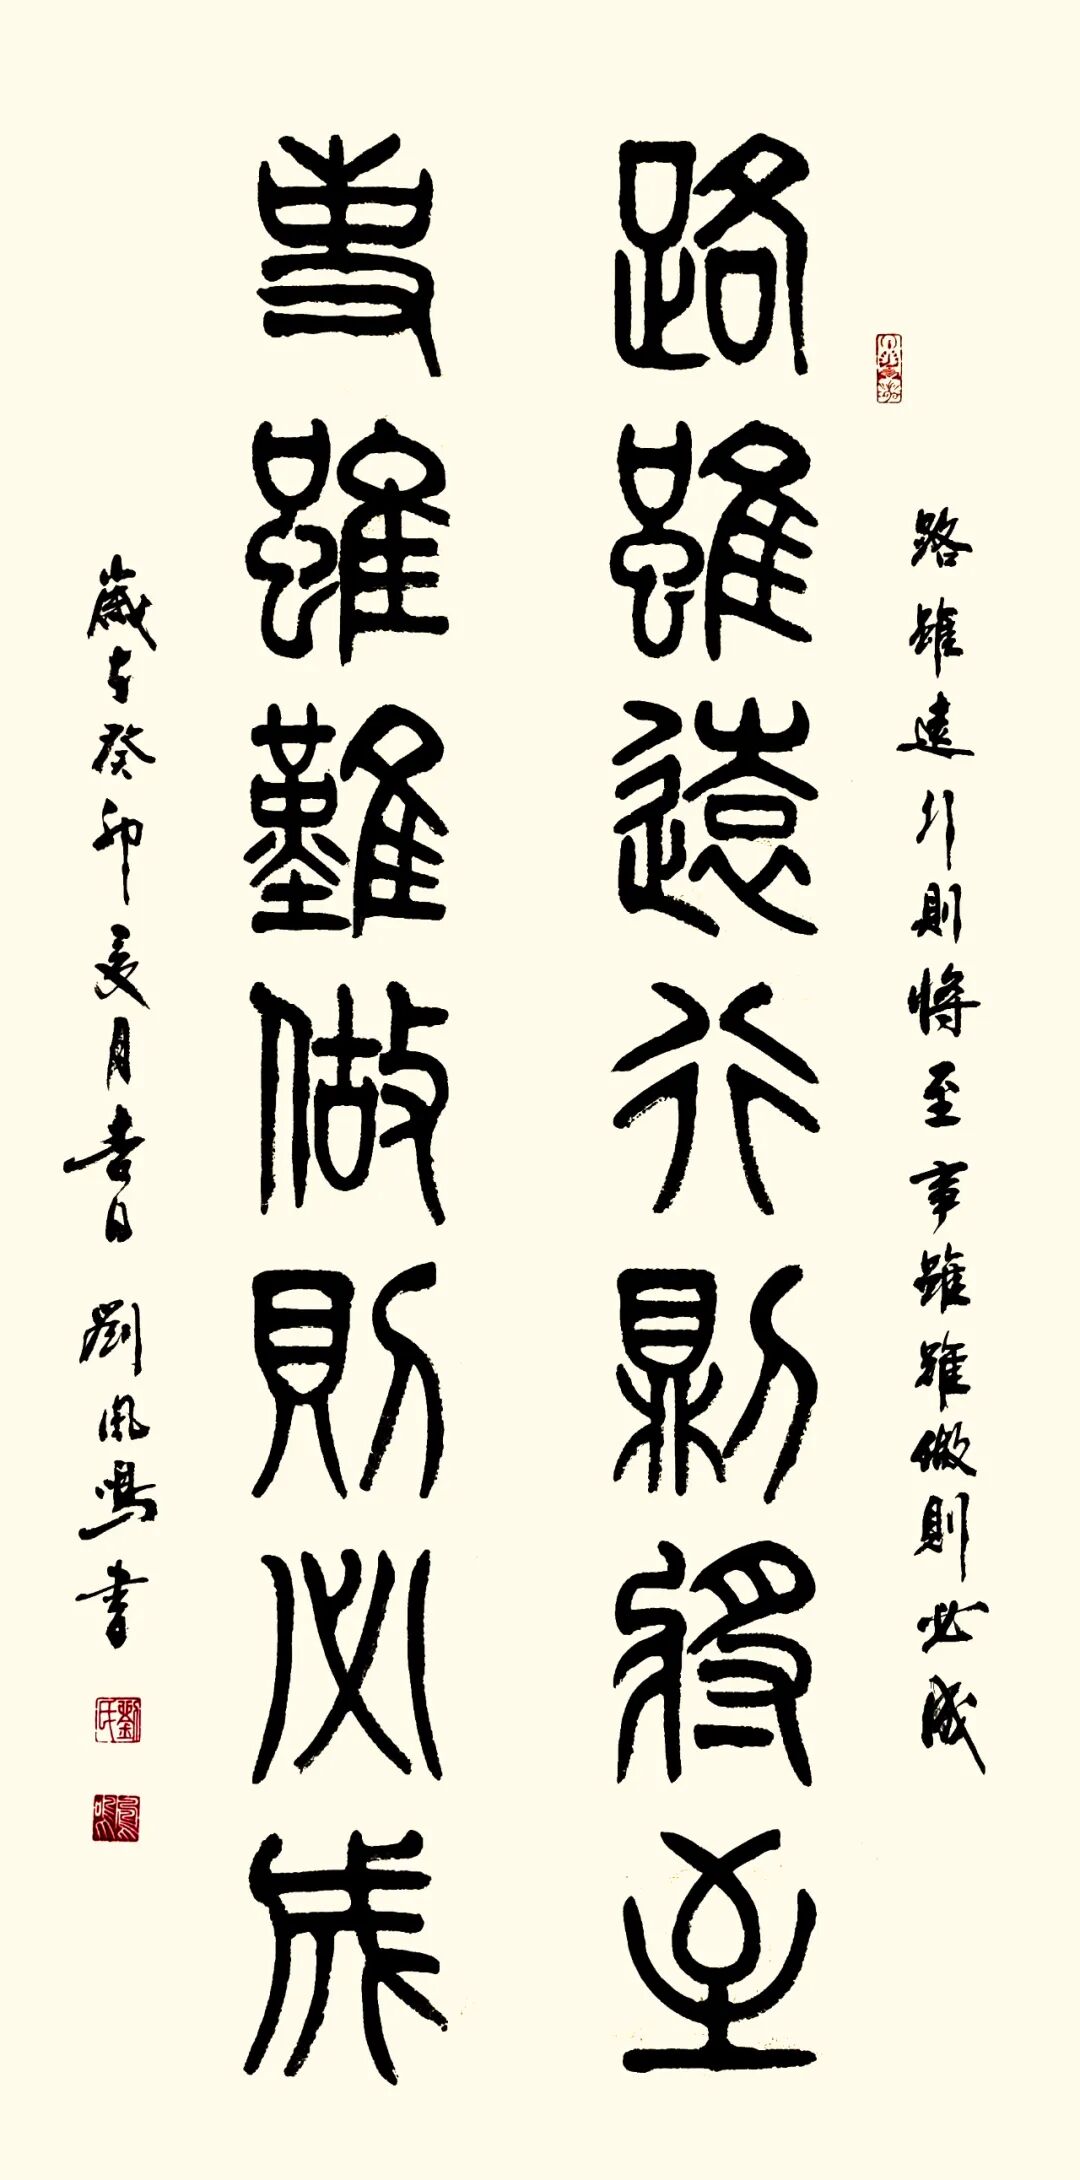 路雖遠行則將至事雖難做則必成
路雖遠行則將至
事雖難做則必成
歲在癸卯夏月吉日 劉鳳鳴書
劉氏
鳳鳴